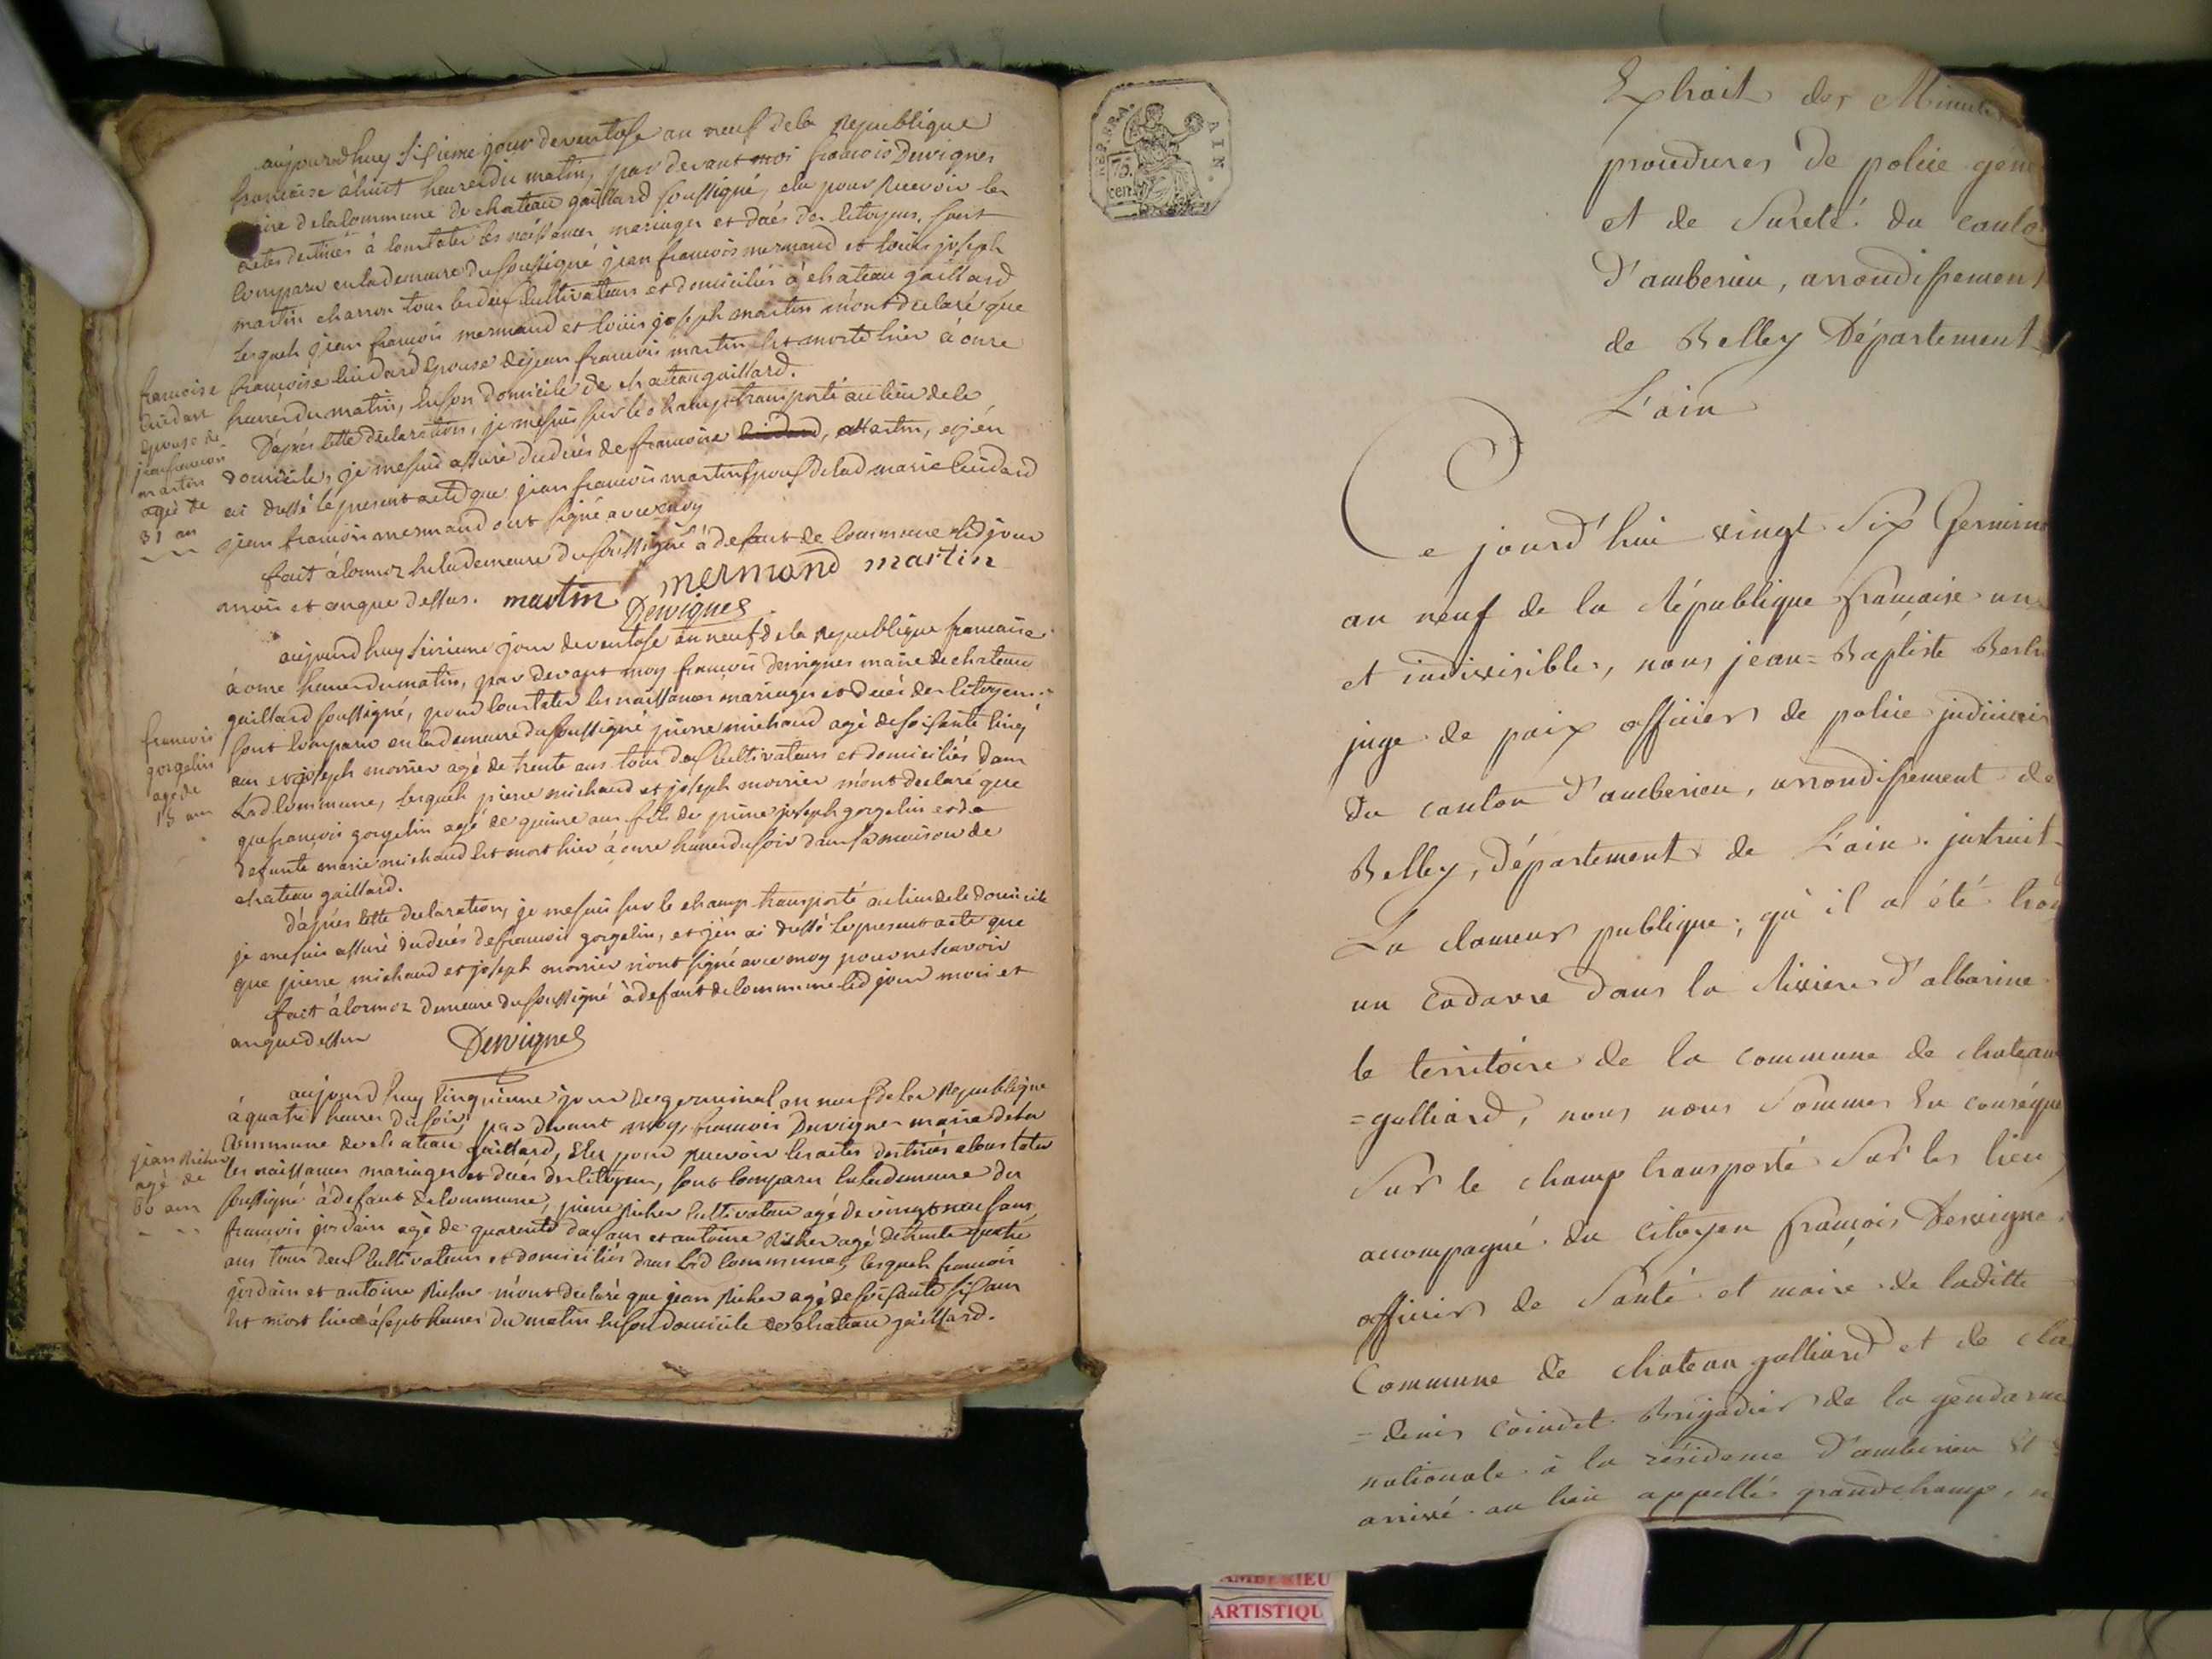 aujourdhuy sixieme jour deventose an neuf dela Republique
francaise à huit heures du matin, par devant moi francois Dervignes
maire delacommune de chateau gaillard soussigné, elu pour Recevoir les
actes destinés à constater les naissances mariages et décés des Citoyens, sont
comparu enlademeure dusoussigné jean francois mermand et louis joseph
martin charron tous les deux cultivateurs et domiciliés à chateau gaillard
lesquels jean francois mermand et louis joseph martin m'ont declaré que
francoise
cuidard
epouse de
jeanfrancois
martin
agée de
31 an
francoise cuidard epouse dejean francois martin, est morte hier à onze
heures du matin, en son domicile de chateaugaillard.
D'aprés cette declaration, je mesuis sur le champ transporté au lieu de le
domicile, je mesuis assuré du décés de francoise cuidard, martin, et j'en
ai dressé le present acte que jean francois martin epoux delad marie cuidard
jean francois mermand ont signé avec moy
fait à lormoz en lademeure du soussigné à defaut de commune led jour
mois et an que dessus. martin mermand martin
Dervignes
aujourdhuy sixieme jour deventose an neuf dela Republique francaise
à onze heures dumatin, par devant moy francois Dervignes maire de chateau
gaillard soussigné, pour constater les naissances mariages et décés des citoyens
francois
gorgelin
agé de
15 ans
sont comparu en lademeure du soussigné pierre michaud agé de soixante cinq
ans et joseph morrier agé de trente ans tous deux cultivateurs et domiciliés dans
Lad commune, lesquels pierre michaud et joseph morrier m'ont declaré que
que francois gorgelin agé de quinze ans fils de pierre joseph gorgelin et de
defunte marie michaud est mort hier à onze heures du soir dans sa maison de
chateau gaillard.
d'aprés cette declaration, je mesuis sur le champ transporté au lieu de le domicile
je mesuis assuré du décés de francois gorgelin, et j'en ai dressé le present acte que
que pierre michaud et joseph morrier n'ont signé avec moy pour ne scavoir
fait à lormoz demeure du soussigné à defaut de commune led jour mois et
an que dessus Dervignes
aujourdhuy cinquieme jour de germinal an neuf de la Republique
à quatre heures du soir, par devant moy, francois Dervignes maire de la
Commune de chateau gaillard, elu pour recevoir les actes destinés a constater
jean Richer
agé de
66 ans
les naissances mariages et décés des citoyens, sont comparu en lademeure du
soussigné à defaut de commune, pierre Richer cultivateur agé de vingt neuf ans,
francois jordain agé de quarente deux ans et antoine Richer agé de trente quatre
ans tous deux cultivateurs et domiciliés dans lad commune, lesquels francois
jordain et antoine Richer m'ont declaré que jean Richer agé de soixante six ans
est mort hier à sept heures du matin en son domicile de chateau gaillard.
REP. FRA. AIN.
75
cent.
Extrait des Minutes
procedures de police géné
et de Sureté du canto
d'amberieu, arrondissement
de Belley Département
L'ain
Ce jourd'hui vingt Six Germina
an neuf de la République francaise une
et indivisible, nous jean=Baptiste
juge de paix officier de police judiciair
du canton d'amberieu, arrondissement de
Belley, Département de L'ain. instruit
La clameur publique, qu'il a été trou
un cadavre dans la Riviere d'albarine
le territoire de la commune de chateau
=galliard, nous nous Sommes En conséque
Sur le champ transporté Sur les lieu
accompagné du Citoyen francois Dervigne
officier de Santé et maire de laditte
Commune de chateau galliard et de cla
=denis coindet Brigadier de la gendarme
nationale à la résidence d'amberieu Et
arrivé au lieu appellé grandchamp, n
AMBERIEU
ARTISTIQU